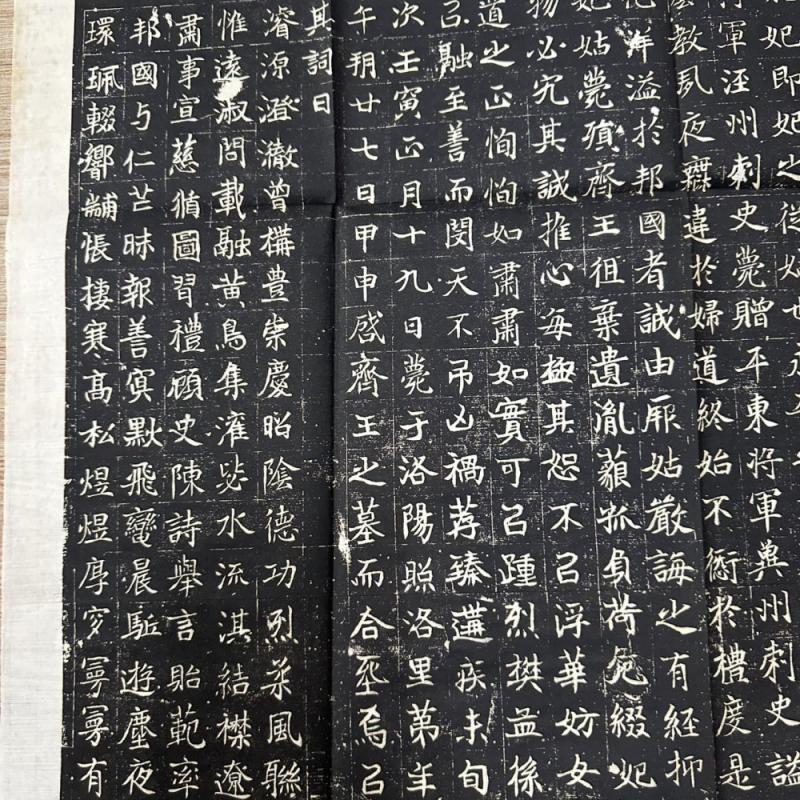 妃即妃之從姑也
軍涇州刺史薨贈平東將軍兗州刺史謚
教夙夜無違於婦道終始不愆於禮度是
化洋溢於邦國者誠由厥姑嚴誨之有經抑
妃姑薨殞齊王徂棄遺胤藐孤負荷危綴妃
物必究其誠推心每極其恕不㠯浮華妨女
道之正恂恂如肅肅如實可㠯踵烈樊益徐
㠯融至善而閔天不弔凶禍荐臻遘疾未旬
次壬寅正月十九日薨于洛陽照洛里第年
午朔廿七日甲申啓齊王之墓而合葬焉㠯
其詞曰
濬源澄澈曾構豊崇慶昭陰德功烈柔風聯
惟遠淑問載融黃鳥集灌毖水流淇結襟遼
肅事宣慈循圖習禮顧史陳詩舉言貽範率
邦國与仁芒昧報善冥默飛鸞晨駈遊塵夜
環珮輟響黼帳棲寒高松煜煜厚穸寥寥有